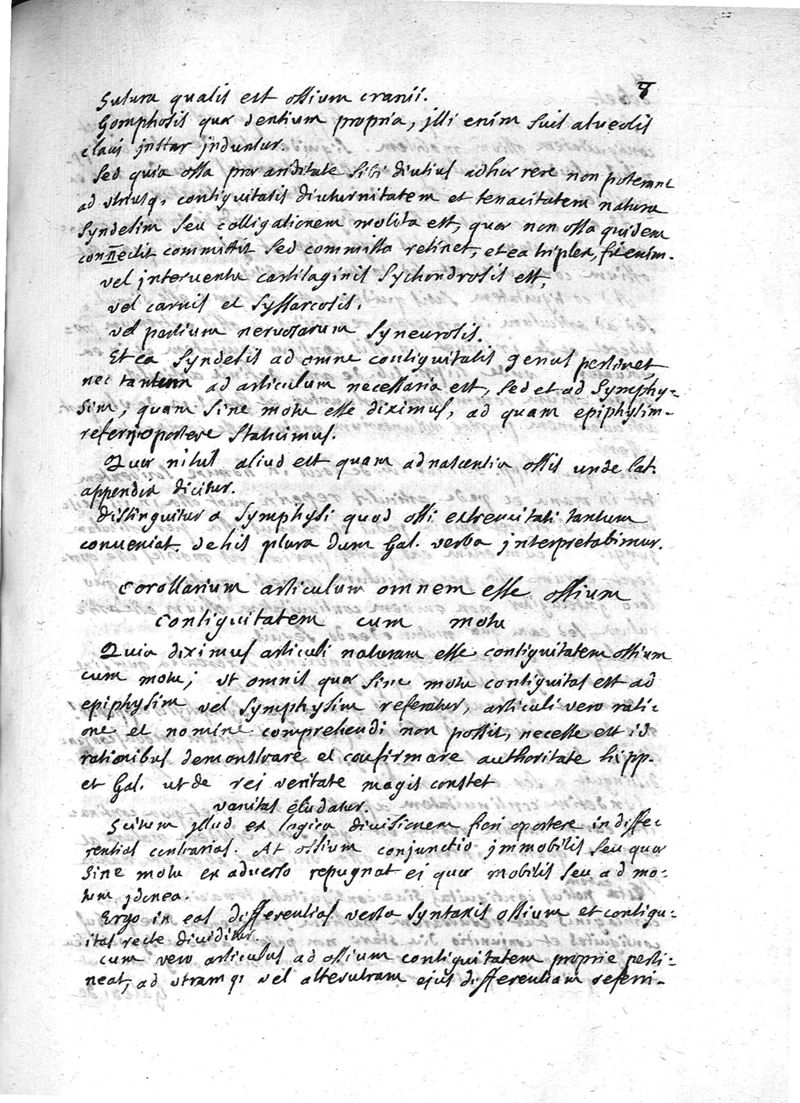 8
Sutura qualis est ossium cranii.
Gomphosis quæ dentium propria, illi enim suis alveolis
clavi instar induntur.
Sed quia ossa præ ariditate sibi diutius adhærere non poterant
ad utriusq, contiguitatis diuturnitatem et tenacitatem natura
Syndesim seu colligationem molita est, quæ non ossa quidem
connectit committit sed commissa retinet, et ea triplex, fit enim.
vel interventu cartilaginis Sychondrosis est,
vel carnis et Syssarcosis.
vel partium nervosarum Syneurosis.
Et ea Syndesis ad omne contiguitatis genus pertinet
nec tantum ad articulum necessaria est, sed et ad Symphy-
sim, quam sine motu esse diximus, ad quam epiphysim-
referri oportere statuimus.
Quæ nihil aliud est quam adnascentia ossis unde lat.
appendix dicitur.
distinguitur a Symphysi quod ossi extremitati tantum
conveniat. de his plura dum Gal. verba interpretabimur.
Corollarium articulum omnem esse ossium
contiguitatem cum motu
Quia diximus articuli naturam esse contiguitatem ossium
cum motu; ut omnis quæ sine motu contiguitas est ad
epiphysim vel Symphysim referatur, articuli vero rati-
one et nomine comprehendi non possit, necesse est id
rationibus demonstrare et confirmare authoritate hipp.
et Gal. ut de rei veritate magis constet
vanitas eludatur.
Scitum illud ex logica divisionem fieri oportere in diffe
rentias contrarias. At ossium conjunctio immobilis seu quæ
sine motu ex adverso repugnat ei quæ mobilis seu ad mo-
tum idonea.
Ergo in eas differentias verba syntaxis ossium et contigu-
itas recte dividitur.
Cum vero articulus ad ossium contiguitatem proprie perti-
neat, ad utramq, vel alterutram ejus differentiam referri-